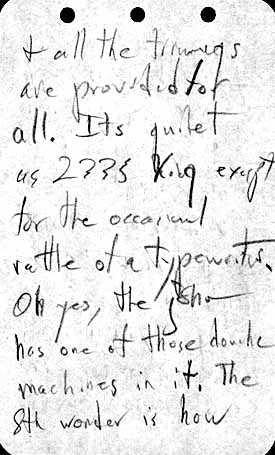 & all the trimmings
are provided for
all. Its quiet
as 2335 King except
for the occasional
rattle of a typewriter.
Oh yes, the
has one of those
machines in it. The
8th wonder is how